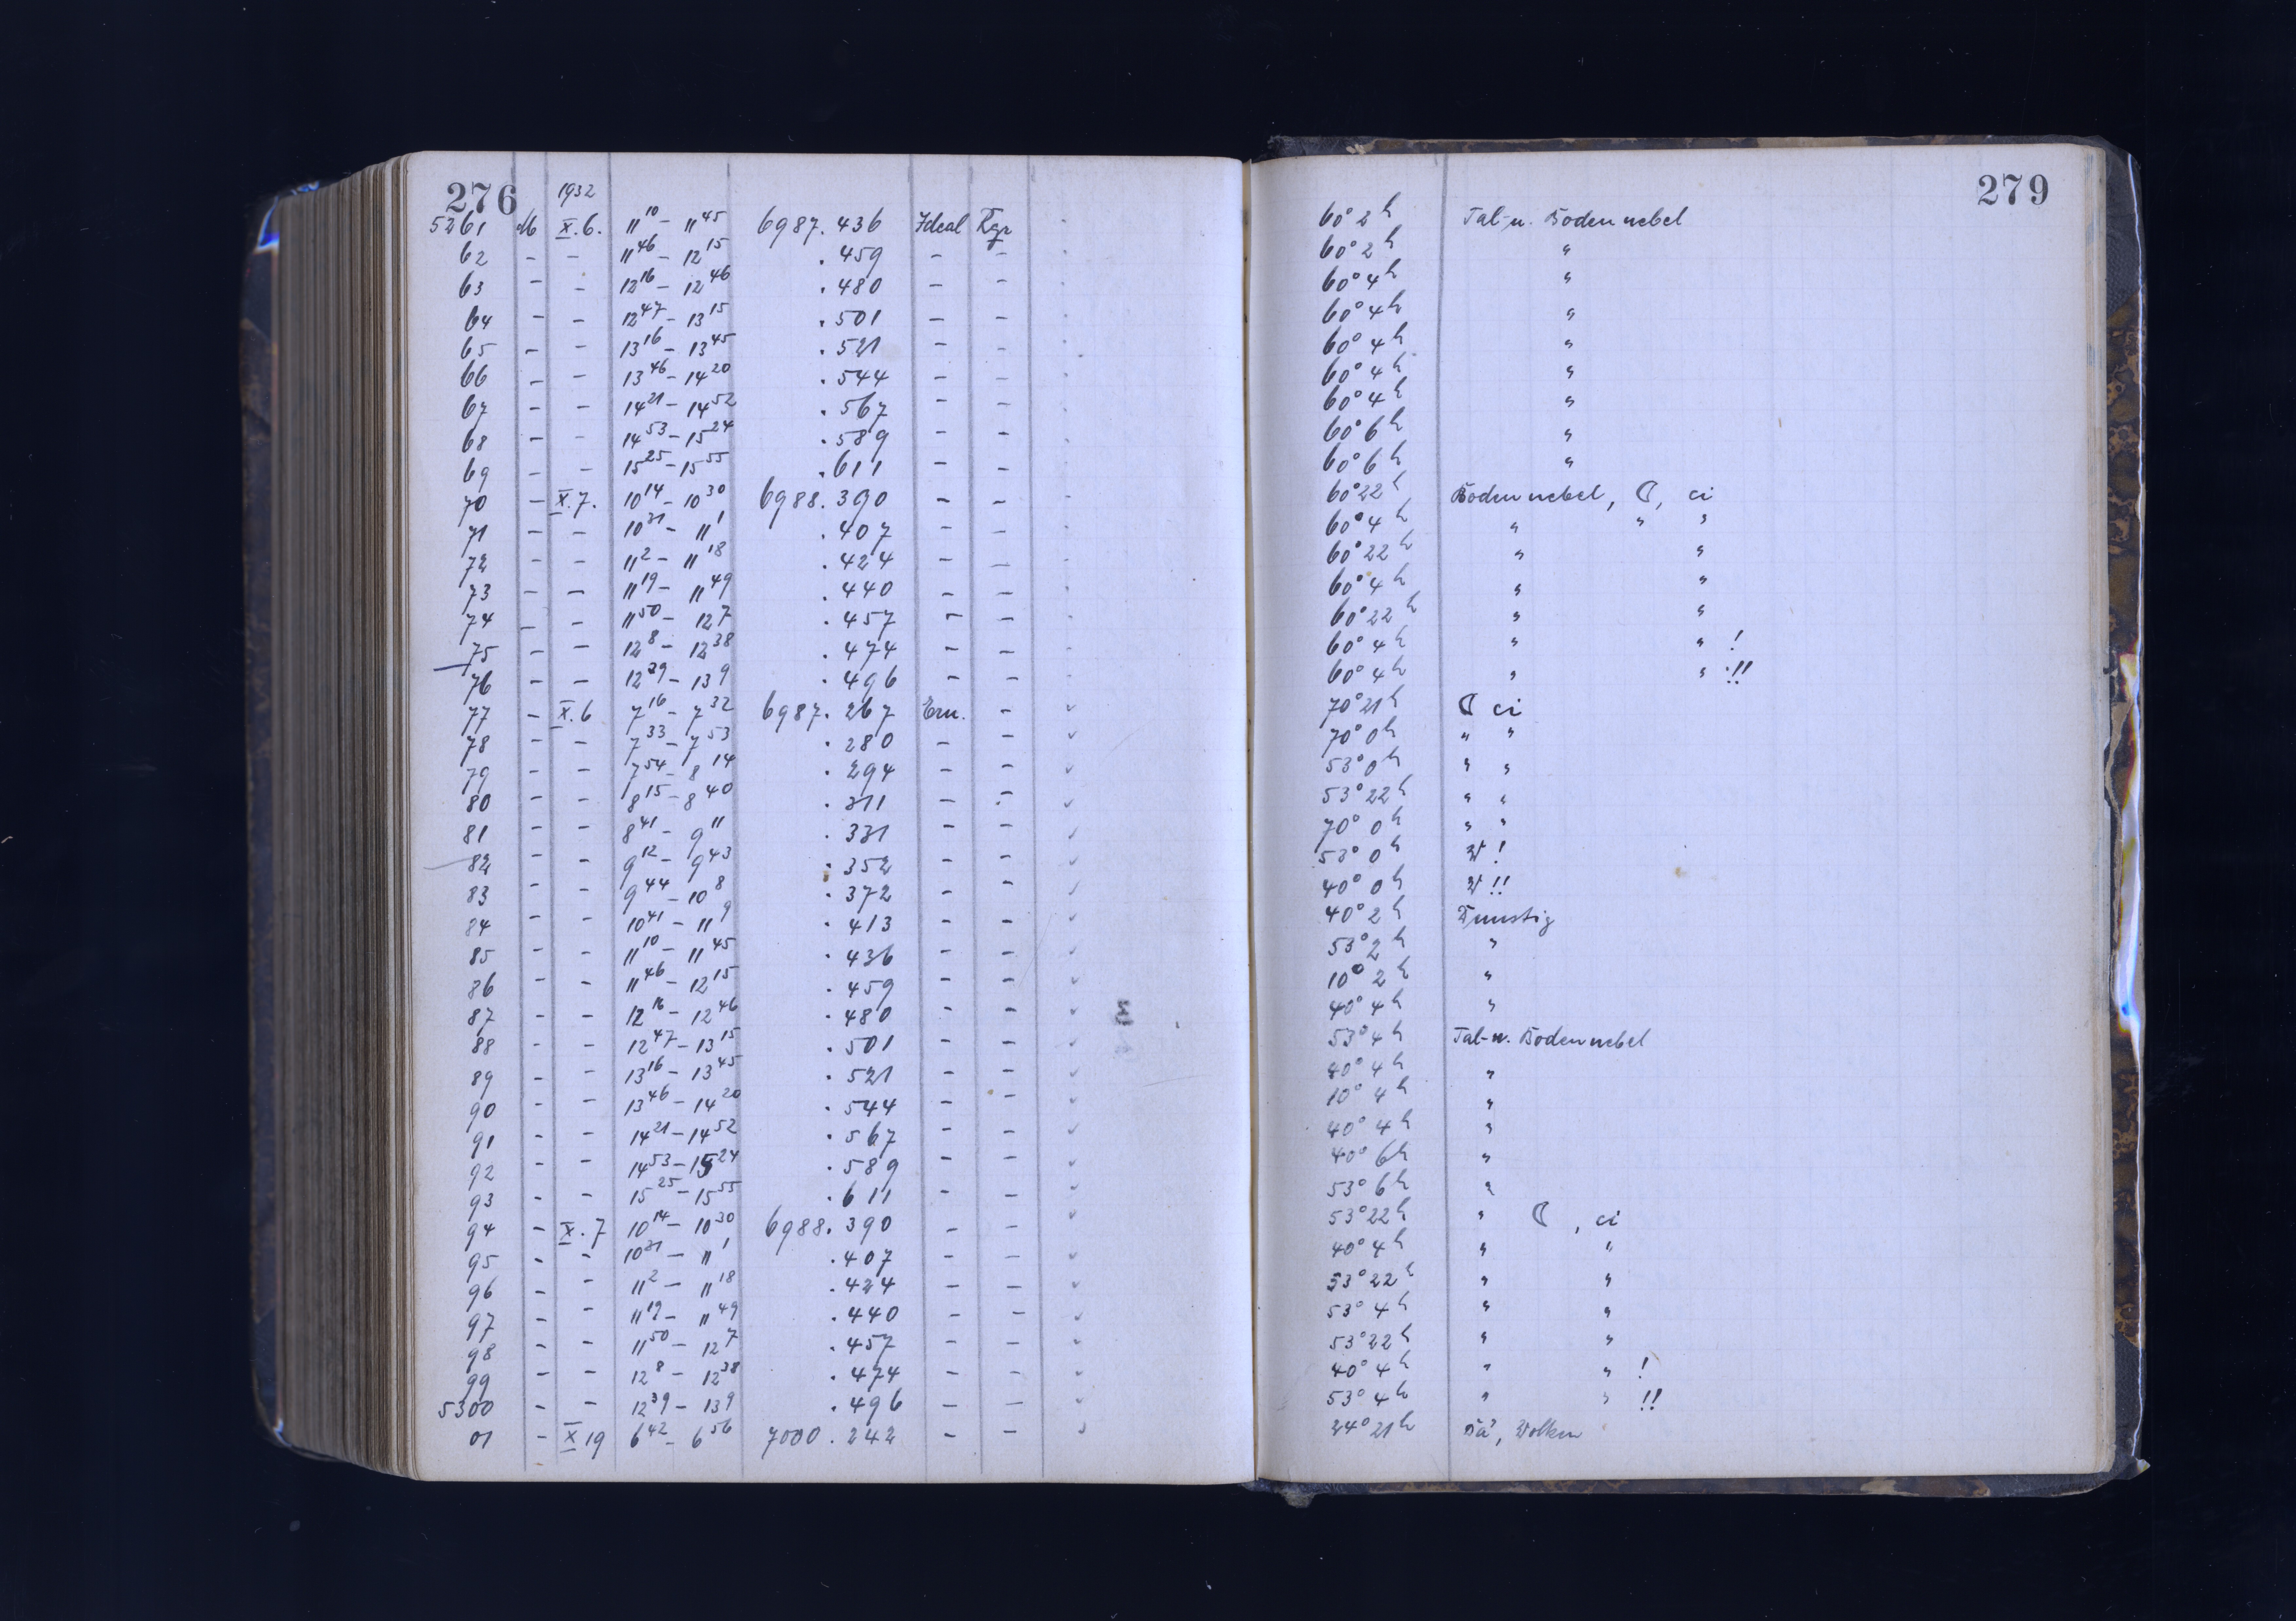 276 1932
5261 M X.6. 11 10 – 11 45 6987.436 Ideal Tgr 60° 2h Tal- u. Bodennebel
62 – – 11 46 – 12 15 .459 – – 60° 2h "
63 – – 12 16 – 12 46 .480 – – 60° 4h "
64 – – 12 47 – 13 15 .501 – – 60° 4h "
65 – – 13 16 – 13 45 .521 – – 60° 4h "
66 – – 13 46 – 14 20 .544 – – 60° 4h "
67 – – 14 21 – 14 52 .567 – – 60° 4h "
68 – – 14 53 – 15 24 .589 – – 60° 6h "
69 – – 15 25 – 15 55 .611 – – 60° 6h "
70 – X.7. 10 14 – 10 30 6988.390 – – 60° 22h Bodennebel, ☾, ci
71 – – 10 31 – 11 1 .407 – – 60° 4h " " "
72 – – 11 2 – 11 18 .424 – – 60° 22h " "
73 – – 11 19 – 11 49 .440 – – 60° 4h " "
74 – – 11 50 – 12 7 .457 – – 60° 22h " "
75 – – 12 8 – 12 38 .474 – – 60° 4h " " !
76 – – 12 39 – 13 9 .496 – – 60° 4h " " !!
77 – X.6 7 16 – 7 32 6987.267 Ern. – 70° 21h ☾ ci
78 – – 7 33 – 7 53 .280 – – 70° 0h " "
79 – – 7 54 – 8 14 .294 – – 53° 0h " "
80 – – 8 15 – 8 40 .311 – – 53° 22h " "
81 – – 8 41 – 9 11 .331 – – 70° 0h " "
82 – – 9 12 – 9 43 .352 – – 53° 0h W !
83 – – 9 44 – 10 8 .372 – – 40° 0h W !!
84 – – 10 41 – 11 9 .413 – – 40° 2h Dunstig
85 – – 11 10 – 11 45 .436 – – 53° 2h "
86 – – 11 46 – 12 15 .459 – – 10° 2h "
87 – – 12 16 – 12 46 .480 – – 40° 4h "
88 – – 12 47 – 13 15 .501 – – 53° 4h Tal- u. Bodennebel
89 – – 13 16 – 13 45 .521 – – 40° 4h "
90 – – 13 46 – 14 20 .544 – – 10° 4h "
91 – – 14 21 – 14 52 .567 – – 40° 4h "
92 – – 14 53 – 15 24 .589 – – 40° 6h "
93 – – 15 25 – 15 55 .611 – – 53° 6h "
94 – X.7 10 14 – 10 30 6988.390 – – 53° 22h " ☾, ci
95 – – 10 31 – 11 1 .407 – – 40° 4h " "
96 – – 11 2 – 11 18 .424 – – 53° 22h " "
97 – – 11 19 – 11 49 .440 – – 53° 4h " "
98 – – 11 50 – 12 7 .457 – – 53° 22h " "
99 – – 12 8 – 12 38 .474 – – 40° 4h " " !
5300 – – 12 39 – 13 9 .496 – – 53° 4h " " !!
01 – X 19 6 42 – 6 56 7000.242 – – 24° 21h Dä, Wolken
279